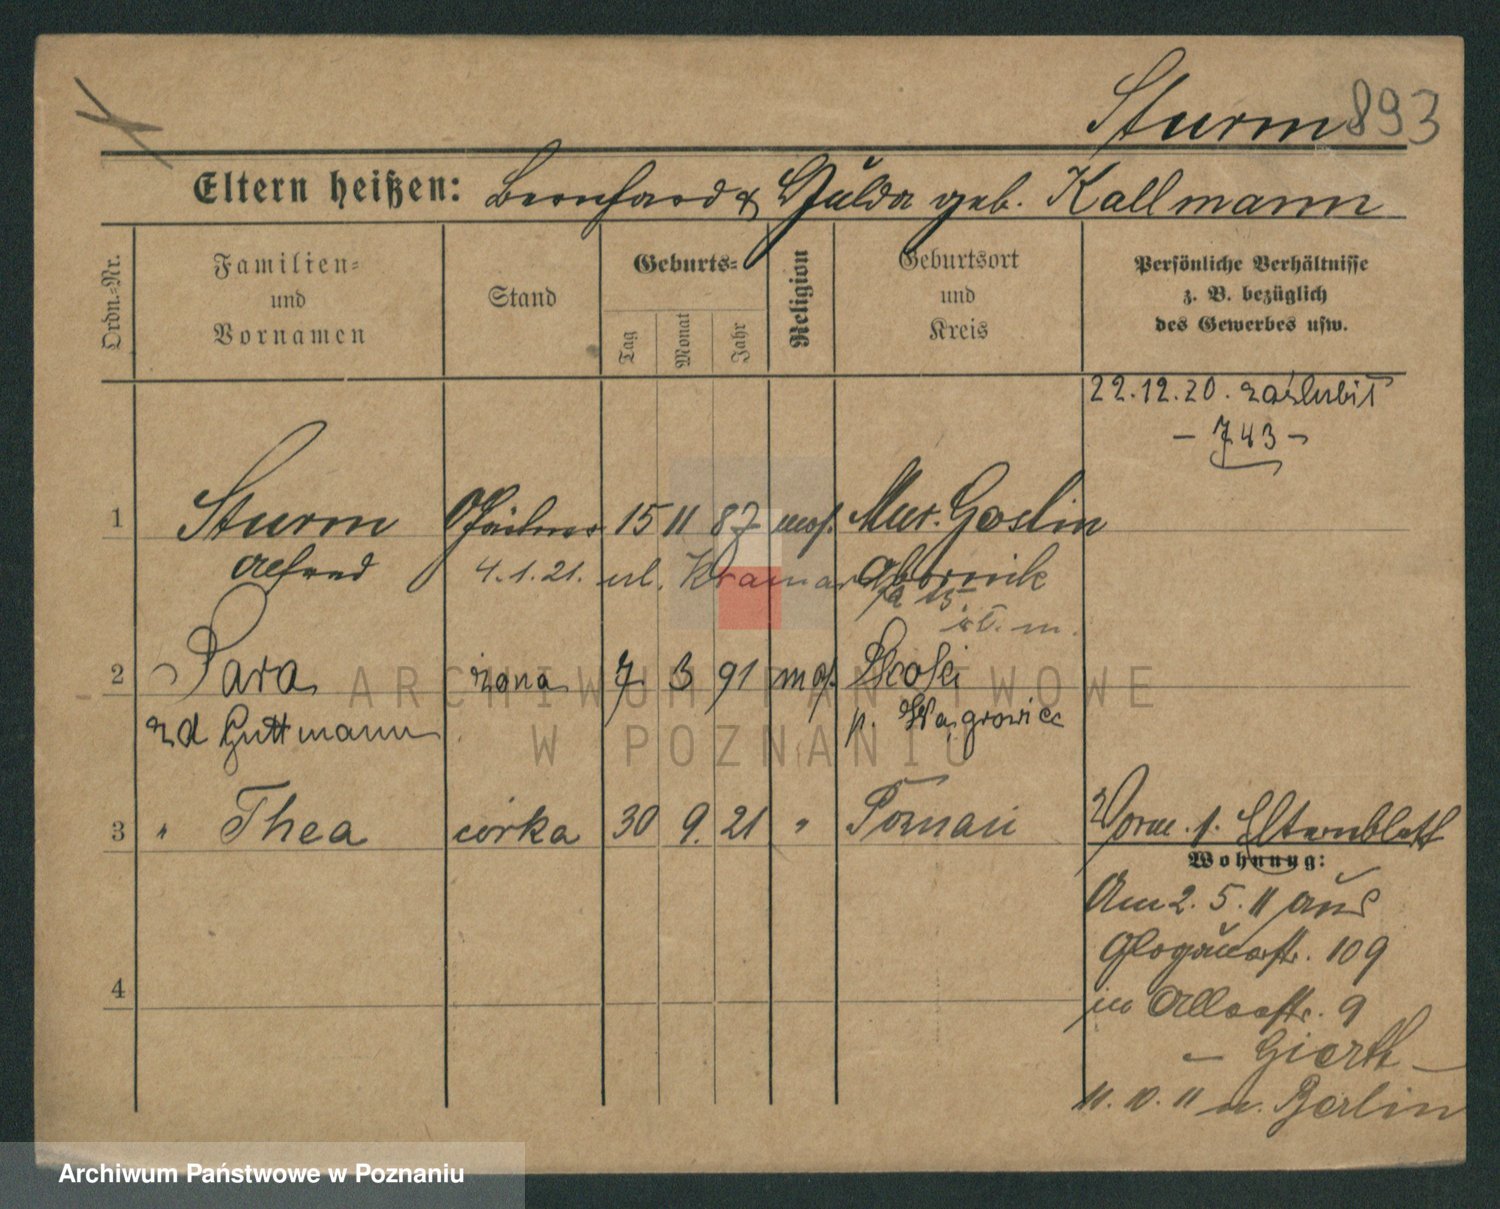 Sturm 893
Eltern heißen: Bernhard & Hulda geb. Kallmann
Ordn.-Nr.
Familien-
und
Vornamen
Stand
Geburts-
Tag
Monat
Jahr
Religion
Geburtsort
und
Kreis
Persönliche Verhältnisse
z. B. bezüglich
des Gewerbes usw.
22.12.20. zaślubił
- 743 -
1 Sturm 15 11 87 mos. Mur. Goslin
Alfred 4.1.21. Kramar Obornik
2 Sara żona 7 3 91 mos. Skoki
zd Guttmann p. Wągrowiec
3 " Thea córka 30 9. 21 " Poznań
Elternblatt
Wohnung:
Am 2. 5. 11 aus
Glogauerstr. 109
in 9
4
- Gierth -
11. 10. 11 n. Berlin
ARCHIWUM PAŃSTWOWE
W POZNANIU
Archiwum Państwowe w Poznaniu